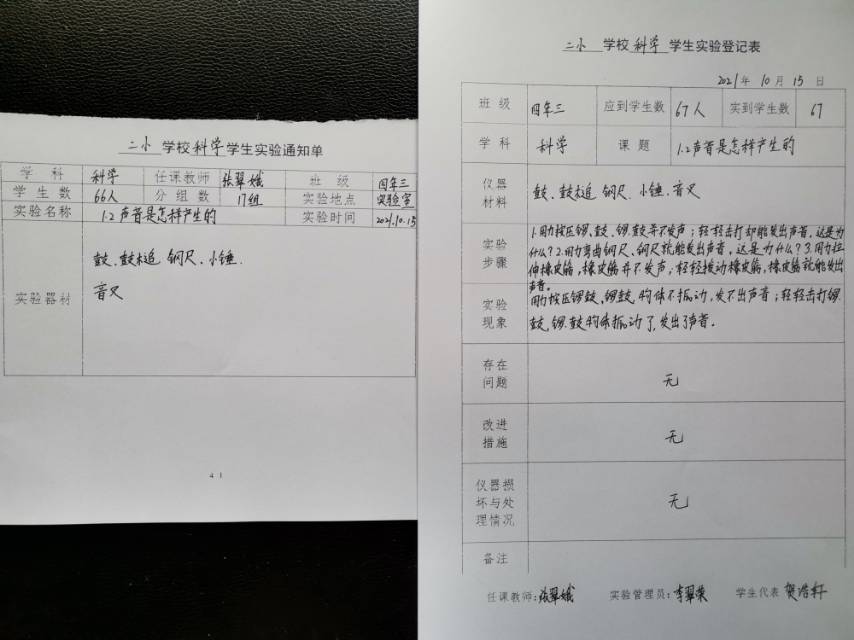 二小 学校 科学 学生实验通知单
学 科 科学 任课教师 张翠娥 班 级 四年三
学 生 数 66人 分 组 数 17组 实验地点 实验室
实验名称 1.2声音是怎样产生的 实验时间 2021.10.15
实验器材
鼓、鼓槌 钢尺、小锤.
音叉
41
二小 学校 科学 学生实验登记表
2021年 10月 15日
班 级 四年三 应到学生数 67人 实到学生数 67
学 科 科学 课 题 1.2声音是怎样产生的
仪器
材料
鼓、鼓槌 钢尺、小锤、音叉
实验
步骤
1.用力按压锣、鼓、锣鼓并不发声；轻轻击打却能发出声音，这是为
什么？2.用力弯曲钢尺、钢尺就能发出声音，这是为什么？3.用力拉
伸橡皮筋，橡皮筋并不发声，轻轻拨动橡皮筋，橡皮筋就能发出
声音。
实验
现象
用力按压锣鼓、锣鼓 物体不振动，发不出声音；轻轻击打锣
鼓，锣.鼓物体振动了，发出了声音。
存在
问题
无
改进
措施
无
仪器损
坏与处
理情况
无
备注
任课教师：张翠娥 实验管理员：李翠荣 学生代表 贺浩轩